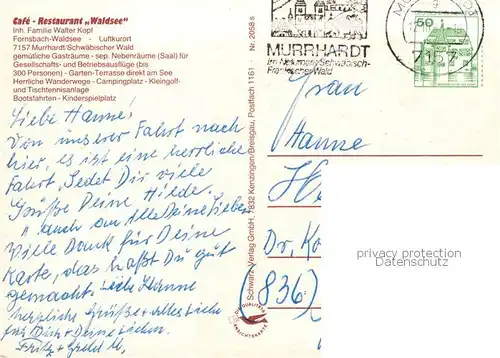 Café - Restaurant „Waldsee"
Inh. Familie Walter Kopf
Fornsbach-Waldsee - Luftkurort
7157 Murrhardt/Schwäbischer Wald
gemütliche Gasträume - sep. Nebenräume (Saal) für
Gesellschafts- und Betriebsausflüge (bis
300 Personen) - Garten-Terrasse direkt am See
Herrliche Wanderwege - Campingplatz - Kleingolf-
und Tischtennisanlage
Bootsfahrten - Kinderspielplatz
Liebe Hanne!
Von unserer Fahrt nach
hier, es ist eine herrliche
Fahrt, sendet Dir viele
Grüße Deine Hilde.
" auch an Alle Deine Lieben
Vielen Dank für Deine
Karte, das hast Du gut
gemacht. Liebe Hanne
herzliche Grüße + alles Liebe
für Dich + Deine Lieben.
Fritz +
Schwarz-Verlag GmbH, 7832 Kenzingen/Breisgau, Postfach 1161 Nr. 2058 s
QUALITÄTS
ANSICHTSKARTE
MURRHARDT
im Naturpark Schwäbisch-
Fränkischer Wald
7157
50
Frau
Hanne
He
Dr. Ko
(836)
privacy protection
Datenschutz